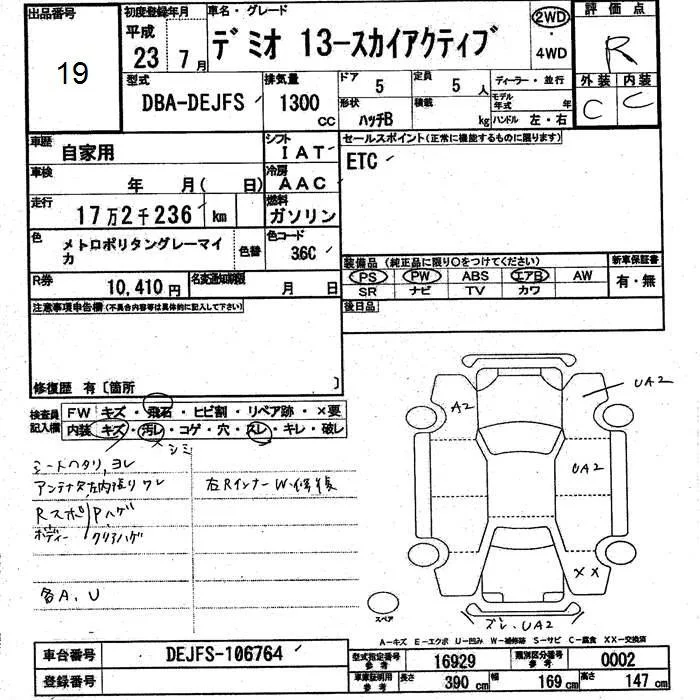 出品番号
19
初度登録年月
平成
23年7月
車名・グレード
デミオ 13-スカイアクティブ
2WD
・
4WD
評価点
R
型式
DBA-DEJFS
排気量
1300
cc
ドア
5
定員
5人
形状
ハッチB
積載
kg
ディーラー・並行
モデル年式
年
ハンドル 左・右
外装
内装
C
C
車歴
自家用
シフト
IAT
車検
年 月( 日)
冷房
AAC
走行
17万2千236
km
燃料
ガソリン
色
メトロポリタングレーマイカ
色替
色コード
36C
R券
10,410円
名変通知期限
月 日
セールスポイント(正常に機能するものに限ります)
ETC
装備品(純正品に限り〇をつけてください)
PS PW ABS エアB AW
SR ナビ TV カワ
新車保証書
有・無
後日品
注意事項申告欄(不具合内容等は具体的に記入して下さい)
修復歴 有〔箇所 〕
検査員記入欄
FW キズ・飛石・ヒビ割・リペア跡・×要
内装 キズ・汚レ・コゲ・穴・スレ・キレ・破レ
シミ
シートヘタリ,ヨレ
アンテナ欠 左内張りワレ
右RインナーW・修復
Rスポ/Pハゲ
ボディー クリアハゲ
各A、U
A2
UA2
UA2
××
ズレ・UA2
スペア
A-キズ E-エクボ U-凹み W-補修跡 S-サビ C-腐食 XX-交換済
車台番号
DEJFS-106764
登録番号
型式指定番号
参考
16929
類別区分番号
参考
0002
車庫証明用
参考
長さ
390cm
幅
169cm
高さ
147cm